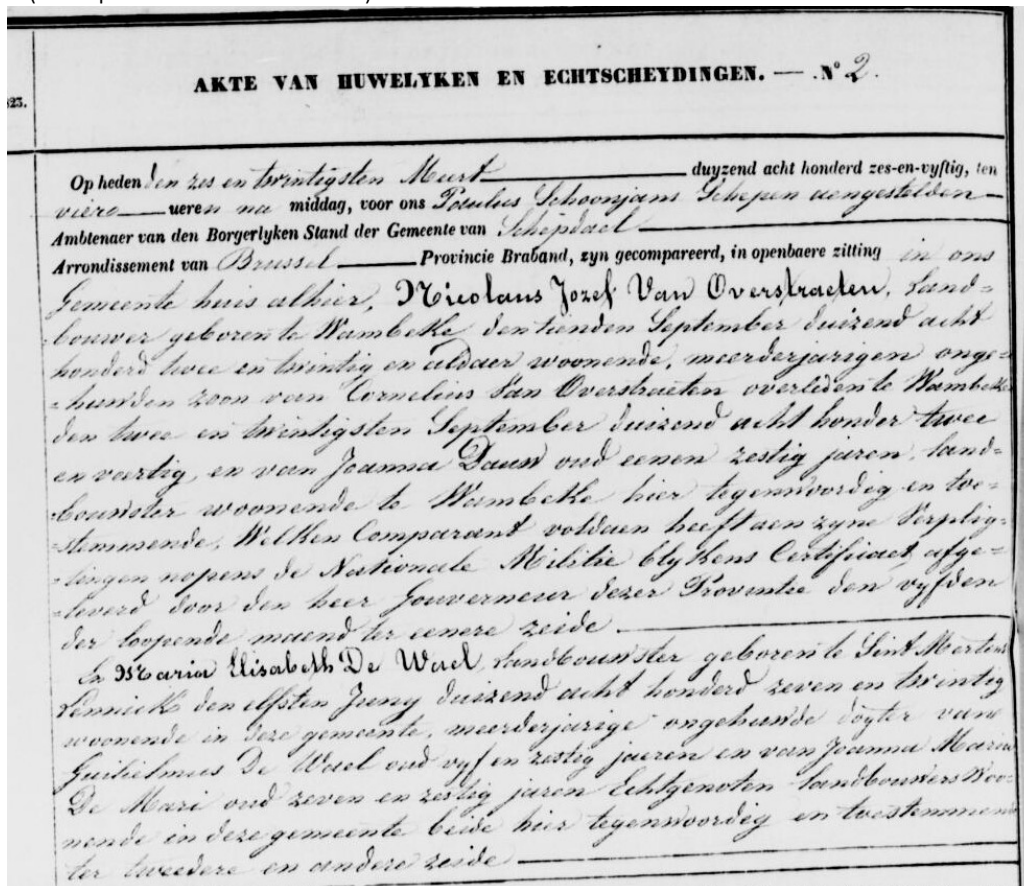 AKTE VAN HUWELYKEN EN ECHTSCHEYDINGEN. — N° 2.
Op heden den zes en twintigsten Meert duyzend acht honderd zes-en-vyftig, ten
viere ueren na middag, voor ons Paulus Schoonjans Schepen aengestelden
Ambtenaer van den Borgerlyken Stand der Gemeente van Schepdael
Arrondissement van Brussel Provincie Braband, zyn gecompareerd, in openbaere zitting in ons
Gemeente huis alhier, Nicolaus Jozef Van Overstraeten, Land=
bouwer geboren te Wambeke den tienden September duizend acht
honderd twee en twintig en aldaer woonende, meerderjarigen onge=
=huwden zoon van Cornelius Van Overstraeten overleden te Wambeke
den twee en twintigsten September duizend acht honder twee
en veertig, en van Joanna Dauw oud eenen zestig jaren, land=
bouwster woonende te Wambeke hier tegenwoordig en toe=
=stemmende, Welken Comparant voldaen heeft aen zyne Verplig=
=tingen nopens de Nationale Militie blykens Certificaet, afge=
=leverd door den heer Gouverneur dezer Provintie den vyfden
der loopende maend ter eenere zeide
En Maria Elisabeth De Wael, Landbouwster geboren te Sint Mertens
Lennick den elfsten Juny duizend acht honderd zeven en twintig
woonende in deze gemeente, meerderjarige ongehuwde dogter van
Guilielmus De Wael oud vyf en zestig jaeren en van Joanna Maria
De Mari oud zeven en zestig jaren Echtgenoten landbouwers Woo=
nende in deze gemeente beide hier tegenwoordig en toestemmende
ter tweedere en andere zeide